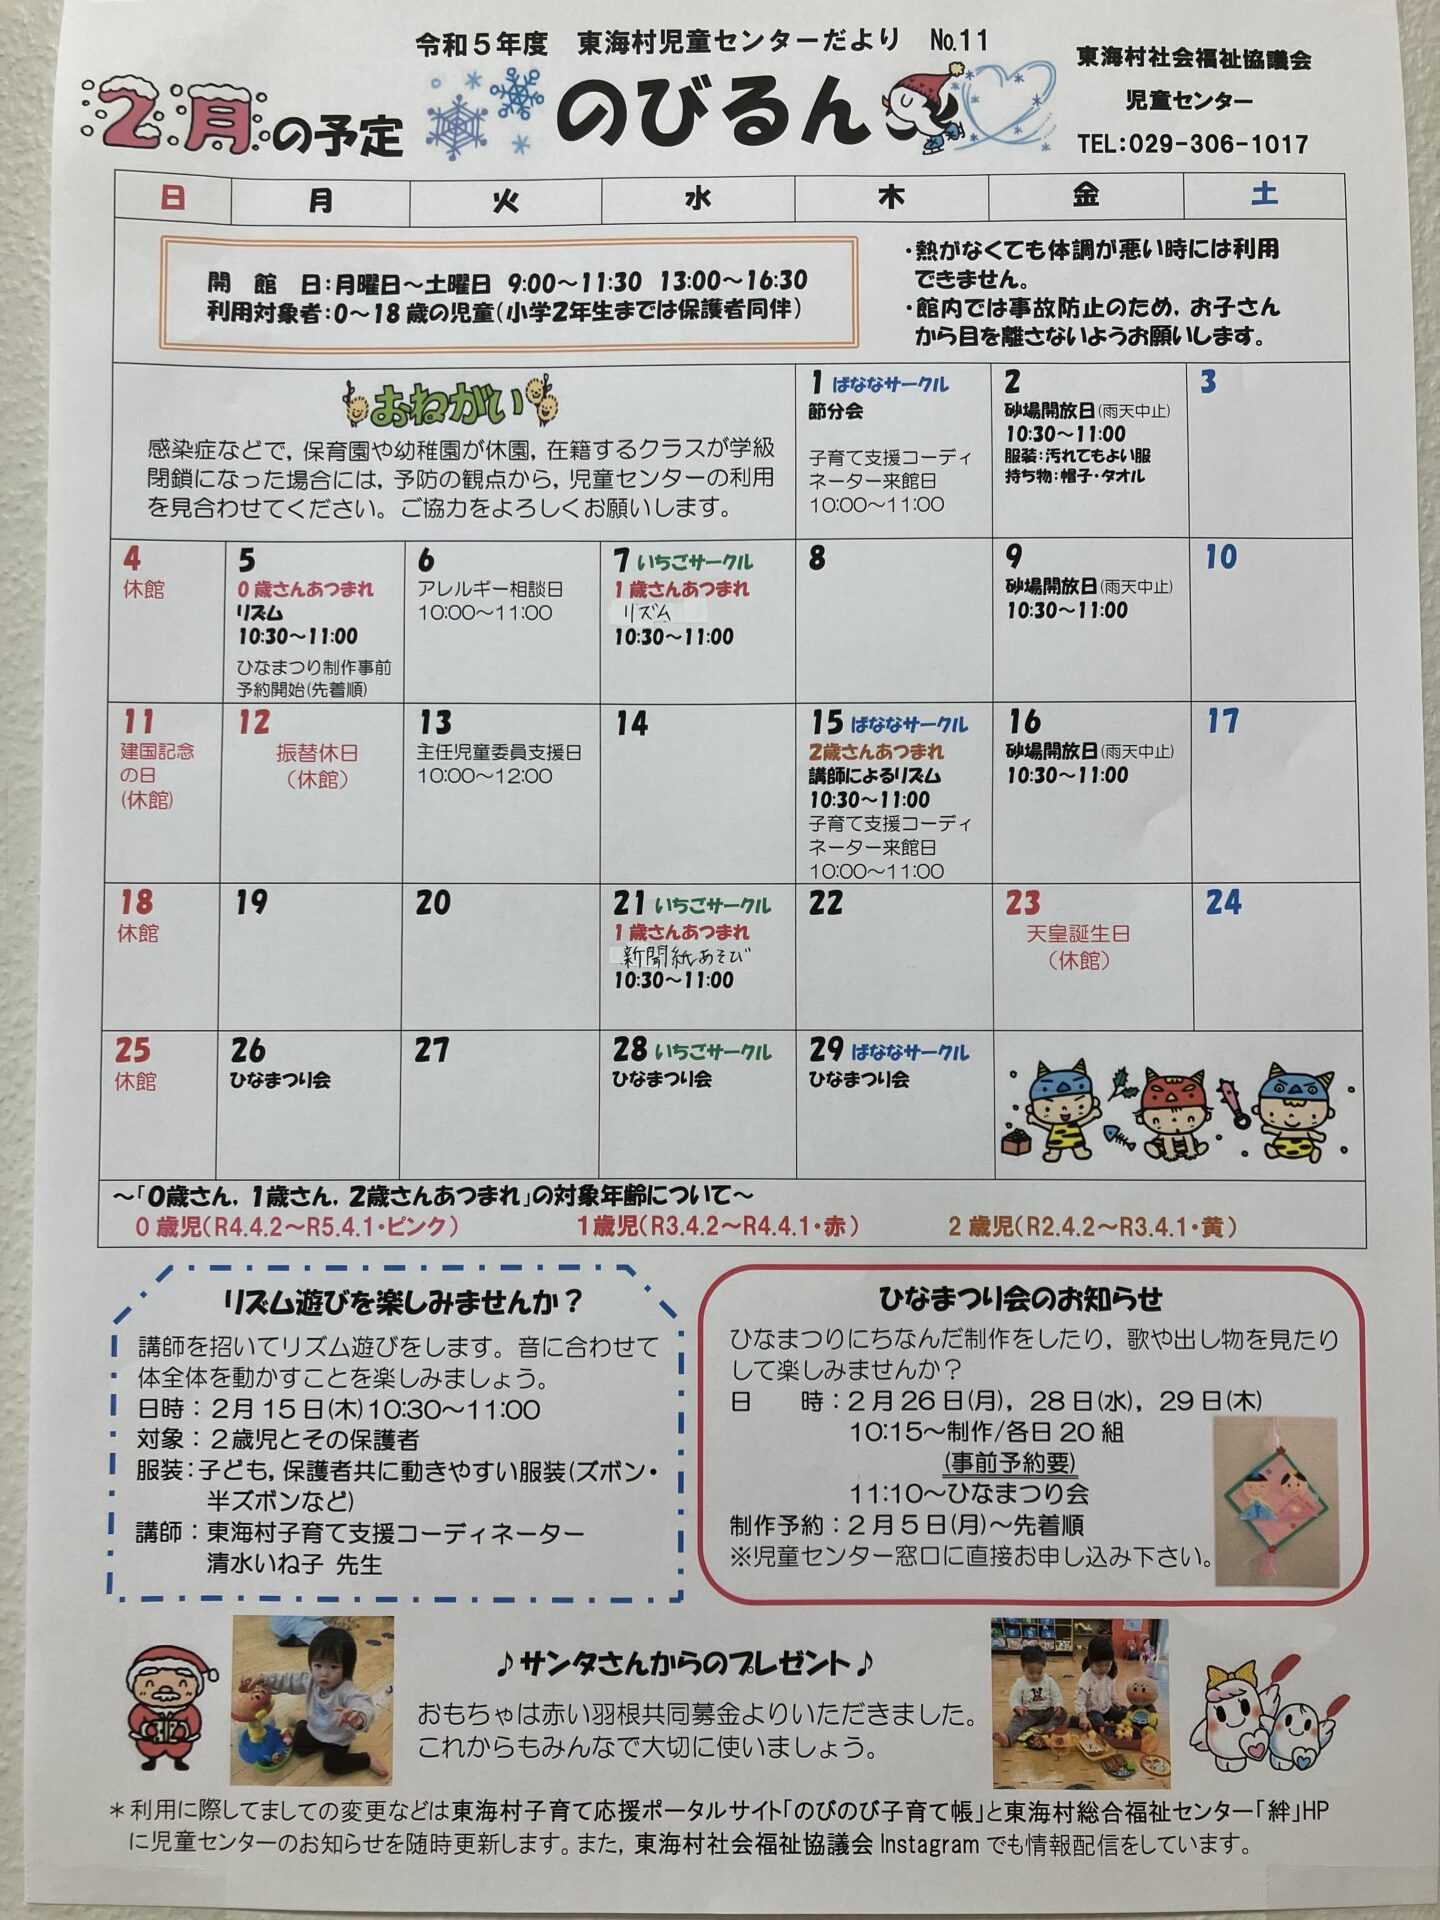 令和5年度　東海村児童センターだより　No.11
2月の予定
のびるん
東海村社会福祉協議会
児童センター
TEL:029-306-1017
日 月 火 水 木 金 土
開　館　日:月曜日～土曜日　9:00～11:30　13:00～16:30
利用対象者:0～18歳の児童(小学2年生までは保護者同伴)
・熱がなくても体調が悪い時には利用
できません。
・館内では事故防止のため,お子さん
から目を離さないようお願いします。
おねがい
感染症などで,保育園や幼稚園が休園,在籍するクラスが学級
閉鎖になった場合には,予防の観点から,児童センターの利用
を見合わせてください。ご協力をよろしくお願いします。
1 ばななサークル
節分会
子育て支援コーディ
ネーター来館日
10:00～11:00
2
砂場開放日(雨天中止)
10:30～11:00
服装:汚れてもよい服
持ち物:帽子・タオル
3
4
休館
5
0歳さんあつまれ
リズム
10:30～11:00
ひなまつり制作事前
予約開始(先着順)
6
アレルギー相談日
10:00～11:00
7 いちごサークル
1歳さんあつまれ
リズム
10:30～11:00
8
9
砂場開放日(雨天中止)
10:30～11:00
10
11
建国記念
の日
(休館)
12
振替休日
(休館)
13
主任児童委員支援日
10:00～12:00
14
15 ばななサークル
2歳さんあつまれ
講師によるリズム
10:30～11:00
子育て支援コーディ
ネーター来館日
10:00～11:00
16
砂場開放日(雨天中止)
10:30～11:00
17
18
休館
19
20
21 いちごサークル
1歳さんあつまれ
新聞紙あそび
10:30～11:00
22
23
天皇誕生日
(休館)
24
25
休館
26
ひなまつり会
27
28 いちごサークル
ひなまつり会
29 ばななサークル
ひなまつり会
～「0歳さん,1歳さん,2歳さんあつまれ」の対象年齢について～
0歳児(R4.4.2～R5.4.1・ピンク)　1歳児(R3.4.2～R4.4.1・赤)　2歳児(R2.4.2～R3.4.1・黄)
リズム遊びを楽しみませんか？
講師を招いてリズム遊びをします。音に合わせて
体全体を動かすことを楽しみましょう。
日時：2月15日(木)10:30～11:00
対象：2歳児とその保護者
服装:子ども,保護者共に動きやすい服装(ズボン・
半ズボンなど)
講師：東海村子育て支援コーディネーター
清水いね子 先生
ひなまつり会のお知らせ
ひなまつりにちなんだ制作をしたり,歌や出し物を見たり
して楽しみませんか？
日　時：2月26日(月),28日(水),29日(木)
10:15～制作/各日20組
(事前予約要)
11:10～ひなまつり会
制作予約：2月5日(月)～先着順
※児童センター窓口に直接お申し込み下さい。
♪サンタさんからのプレゼント♪
おもちゃは赤い羽根共同募金よりいただきました。
これからもみんなで大切に使いましょう。
＊利用に際してましての変更などは東海村子育て応援ポータルサイト「のびのび子育て帳」と東海村総合福祉センター「絆」HP
に児童センターのお知らせを随時更新します。また,東海村社会福祉協議会 Instagram でも情報配信をしています。